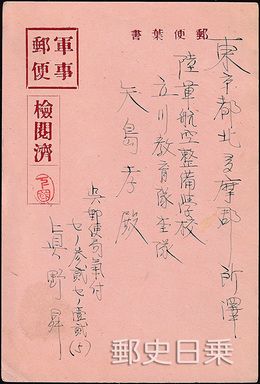 郵便葉書
軍事郵便
檢閲濟
東京都北多摩郡所澤
陸軍航空整備學校
立川教育隊本隊
矢島孝殿
呉郵便局氣付
セノ参貳セノ壹貳(5)
眞野昇
郵史日乗